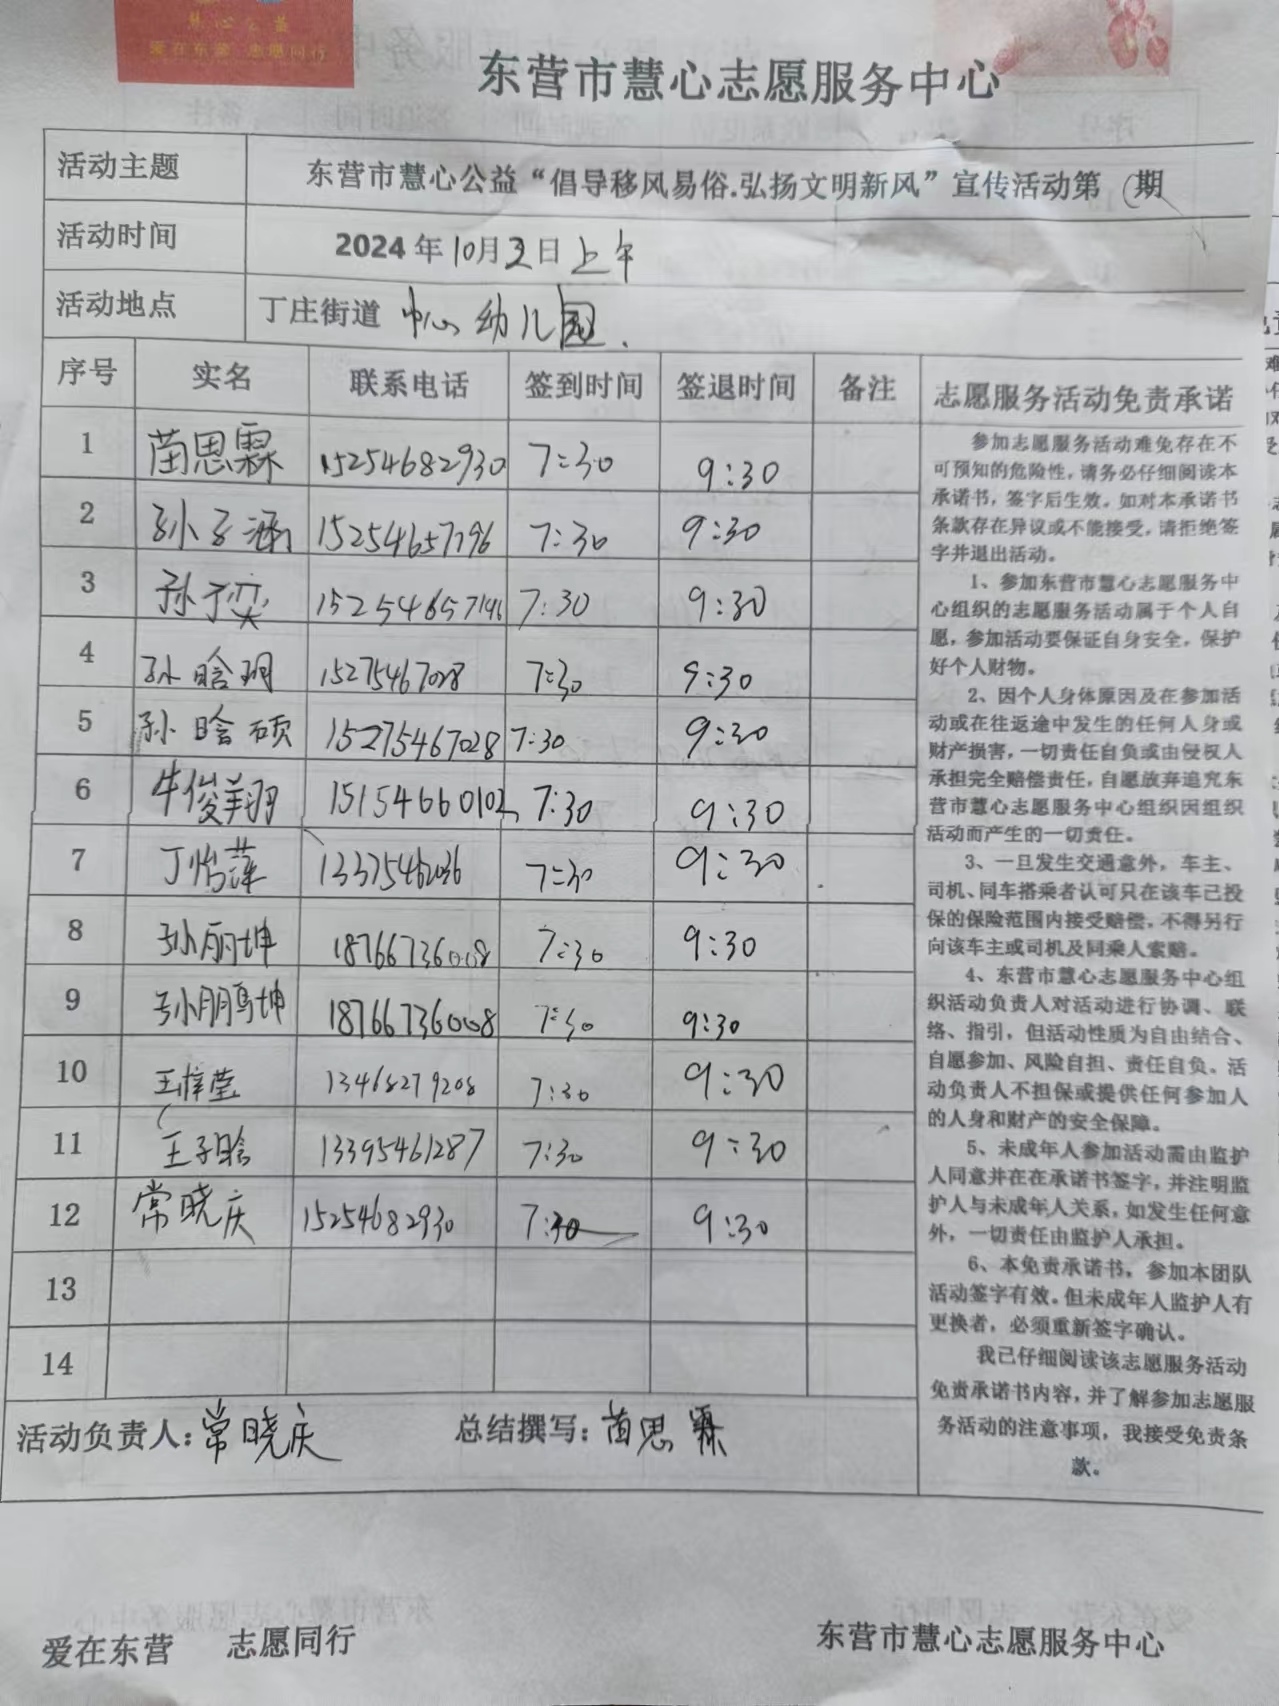 慧心公益
爱在东营 志愿同行
东营市慧心志愿服务中心
活动主题 东营市慧心公益“倡导移风易俗.弘扬文明新风”宣传活动第 期
活动时间 2024年10月 日上午
活动地点 丁庄街道 中心幼儿园.
序号 实名 联系电话 签到时间 签退时间 备注
1 苗思霖 15254682930 7:30 9:30
2 孙子涵 15254657196 7:30 9:30
3 孙于奕 15254657196 7:30 9:30
4 孙晗玥 15275467028 7:30 9:30
5 孙晗硕 15275467028 7:30 9:30
6 牛俊翔 15154660102 7:30 9:30
7 丁怡萍 7:30 9:30
8 孙丽坤 18766736008 7:30 9:30
9 孙鹏坤 18766736008 7:30 9:30
10 王梓莹 13468279208 7:30 9:30
11 王子晗 13395461287 7:30 9:30
12 常晓庆 15254682930 7:30 9:30
13
14
活动负责人:常晓庆 总结撰写:苗思霖
志愿服务活动免责承诺
参加志愿服务活动难免存在不
可预知的危险性,请务必仔细阅读本
承诺书,签字后生效。如对本承诺书
条款存在异议或不能接受,请拒绝签
字并退出活动。
1、参加东营市慧心志愿服务中
心组织的志愿服务活动属于个人自
愿,参加活动要保证自身安全,保护
好个人财物。
2、因个人身体原因及在参加活
动或在往返途中发生的任何人身或
财产损害,一切责任自负或由侵权人
承担完全赔偿责任,自愿放弃追究东
营市慧心志愿服务中心组织因组织
活动而产生的一切责任。
3、一旦发生交通意外,车主、
司机、同车搭乘者认可只在该车已投
保的保险范围内接受赔偿,不得另行
向该车主或司机及同乘人索赔。
4、东营市慧心志愿服务中心组
织活动负责人对活动进行协调、联
络、指引,但活动性质为自由结合、
自愿参加、风险自担、责任自负。活
动负责人不担保或提供任何参加人
的人身和财产的安全保障。
5、未成年人参加活动需由监护
人同意并在在承诺书签字,并注明监
护人与未成年人关系,如发生任何意
外,一切责任由监护人承担。
6、本免责承诺书,参加本团队
活动签字有效。但未成年人监护人有
更换者,必须重新签字确认。
我已仔细阅读该志愿服务活动
免责承诺书内容,并了解参加志愿服
务活动的注意事项,我接受免责条
款。
爱在东营 志愿同行 东营市慧心志愿服务中心